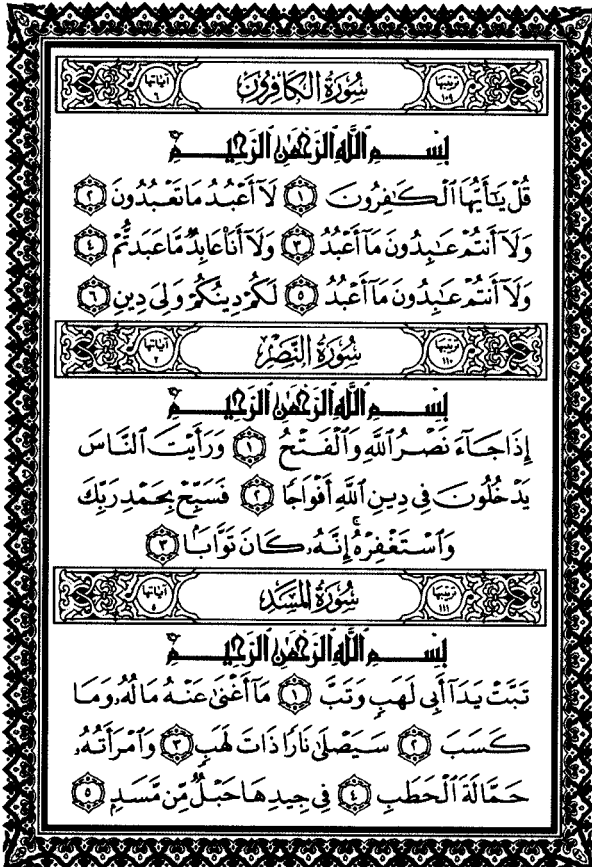 ترتيبها ١٠٩ سُورَةُ الكَافِرُونَ آياتها ٦
بِسْمِ ٱللَّهِ ٱلرَّحْمَٰنِ ٱلرَّحِيمِ
قُلْ يَٰٓأَيُّهَا ٱلْكَٰفِرُونَ ١ لَآ أَعْبُدُ مَا تَعْبُدُونَ ٢
وَلَآ أَنتُمْ عَٰبِدُونَ مَآ أَعْبُدُ ٣ وَلَآ أَنَا۠ عَابِدٌ مَّا عَبَدتُّمْ ٤
وَلَآ أَنتُمْ عَٰبِدُونَ مَآ أَعْبُدُ ٥ لَكُمْ دِينُكُمْ وَلِىَ دِينِ ٦
ترتيبها ١١٠ سُورَةُ النَّصْرِ آياتها ٣
بِسْمِ ٱللَّهِ ٱلرَّحْمَٰنِ ٱلرَّحِيمِ
إِذَا جَآءَ نَصْرُ ٱللَّهِ وَٱلْفَتْحُ ١ وَرَأَيْتَ ٱلنَّاسَ
يَدْخُلُونَ فِى دِينِ ٱللَّهِ أَفْوَاجًا ٢ فَسَبِّحْ بِحَمْدِ رَبِّكَ
وَٱسْتَغْفِرْهُ ۚ إِنَّهُۥ كَانَ تَوَّابًۢا ٣
ترتيبها ١١١ سُورَةُ المَسَدِ آياتها ٥
بِسْمِ ٱللَّهِ ٱلرَّحْمَٰنِ ٱلرَّحِيمِ
تَبَّتْ يَدَآ أَبِى لَهَبٍ وَتَبَّ ١ مَآ أَغْنَىٰ عَنْهُ مَالُهُۥ وَمَا
كَسَبَ ٢ سَيَصْلَىٰ نَارًا ذَاتَ لَهَبٍ ٣ وَٱمْرَأَتُهُۥ
حَمَّالَةَ ٱلْحَطَبِ ٤ فِى جِيدِهَا حَبْلٌ مِّن مَّسَدٍۭ ٥